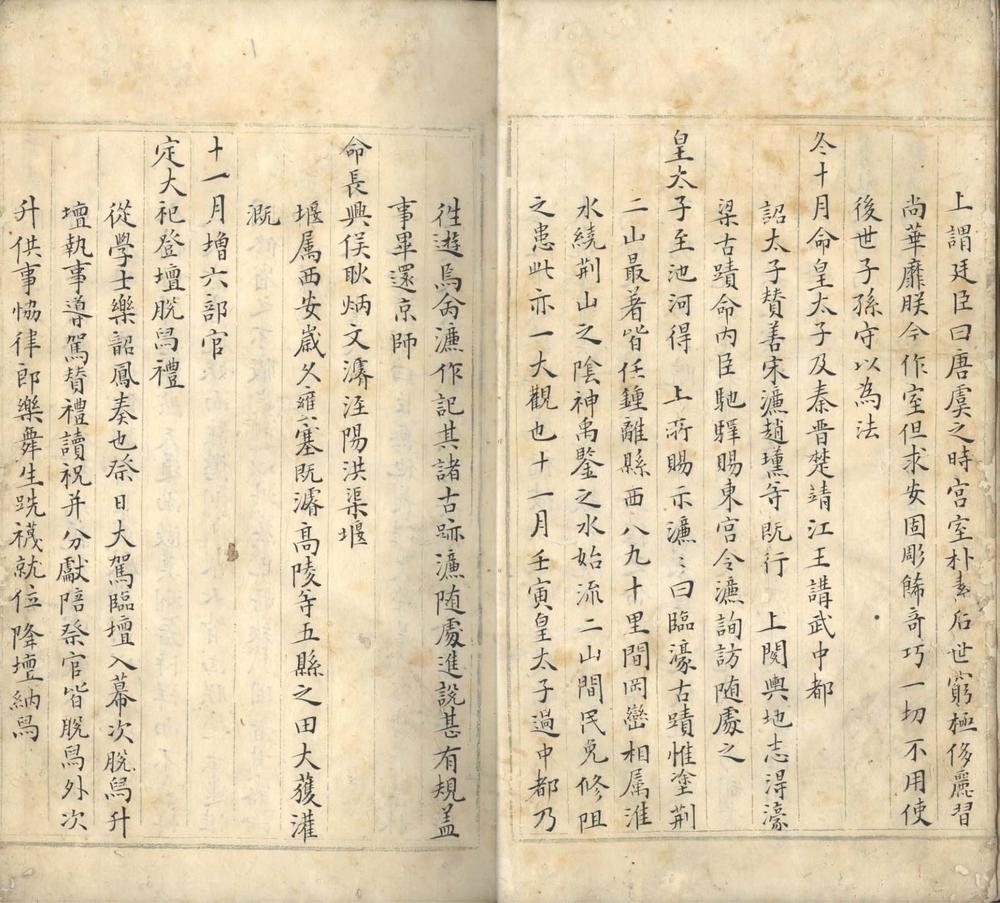 上謂廷臣曰唐虞之時宮室朴素后世窮極侈麗習
尚華靡朕今作室但求安固彫餙奇巧一切不用使
後世子孫守以為法
冬十月命皇太子及秦晋楚靖江王講武中都
詔太子賛善宋濂趙壎等既行　上閱輿地志淂濠
梁古蹟命内臣馳驛賜東宮令濂詢訪随處之
皇太子至池河得　上所賜示濂〻曰臨濠古蹟惟塗荆
二山最著皆在鍾離縣西八九十里間岡巒相属淮
水繞荆山之陰神禹鑿之水始流二山間民免修阻
之患此亦一大觀也十一月壬寅皇太子過中都乃
徃遊焉命濂作記其諸古跡濂随處進說甚有規益
事畢還京師
命長興侯耿炳文濬涇陽洪渠堰
堰属西安嵗久壅塞既濬髙陵等五縣之田大獲灌
溉
十一月增六部官
定大祀登壇脫舄禮
從學士樂韶鳳奏也祭日大駕臨壇入幕次脫舄升
壇執事導駕賛禮讀祝并分獻陪祭官皆脫舄外次
升供事恊律郎樂舞生跣襪就位降壇納舄